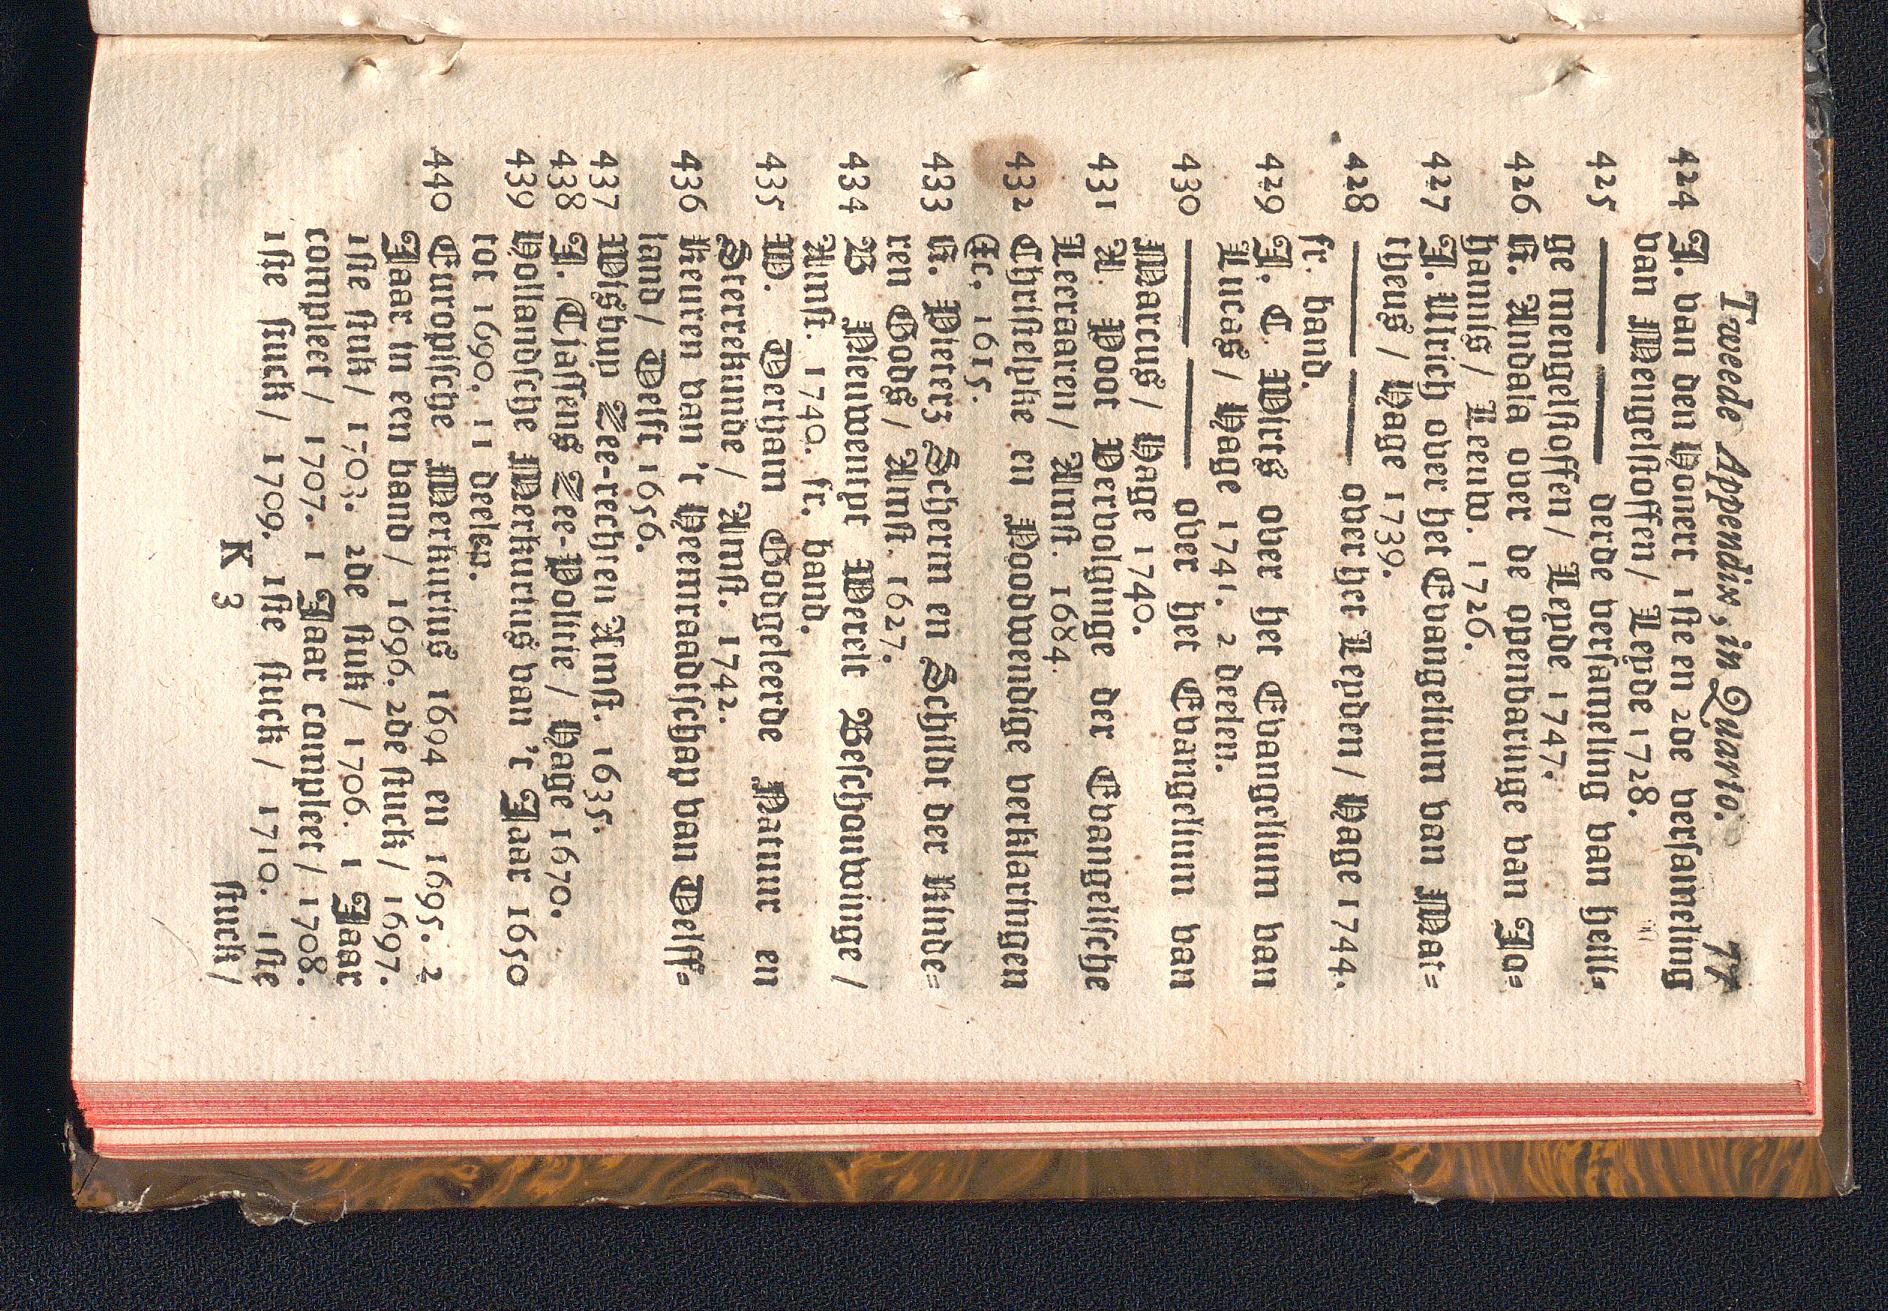 Tweede Appendix, in Quarto. 77
424 J. van den Honert 1ste en 2de versameling
van Mengelstoffen / Leyde 1728.
425 —— —— derde versameling van heili-
ge mengelstoffen / Leyde 1747.
426 R. Andala over de openbaringe van Jo-
hannis / Leeuw. 1726.
427 J. Ulrich over het Evangelium van Mat-
theus / Hage 1739.
428 —— —— over het Leyden / Hage 1744.
fr. band.
429 J. C. Wirts over het Evangelium van
Lucas / Hage 1741. 2 deelen.
430 —— —— over het Evangelium van
Marcus / Hage 1740.
431 A. Poot Vervolginge der Evangelische
Leeraaren / Amst. 1684.
432 Christelyke en Noodwendige verklaringen
&c. 1615.
433 R. Pieters Scherm en Schildt der Kinde-
ren Gods / Amst. 1627.
434 B Nieuwentipt Werelt Beschouwinge /
Amst. 1740. fr. band.
435 W. Derham Godgeleerde Natuur en
Sterrekunde / Amst. 1742.
436 Keuren van 't Heemraadschap van Delff-
land / Delft 1656.
437 Wisbup Zee-rechten Amst. 1635.
438 J. Tjassens Zee-Politie / Hage 1670.
439 Hollandsche Merkurius van 't Jaar 1650
tot 1690. 11 deelen.
440 Europische Merkurius 1694 en 1695. 2
Jaar in een band / 1696. 2de stuck / 1697.
1ste stuk / 1703. 2de stuk / 1706. 1 Jaar
compleet / 1707. 1 Jaar compleet / 1708.
1ste stuck / 1709. 1ste stuck / 1710. 1ste
K 3 stuck /